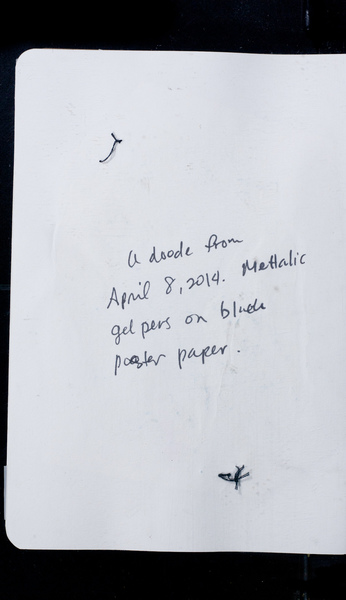 a doode from
April 8, 2014. Mettalic
gel pens on black
poster paper.